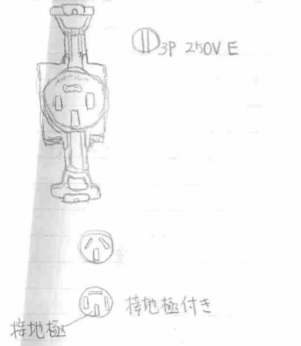 3P 250V E
接地極付き
接地極